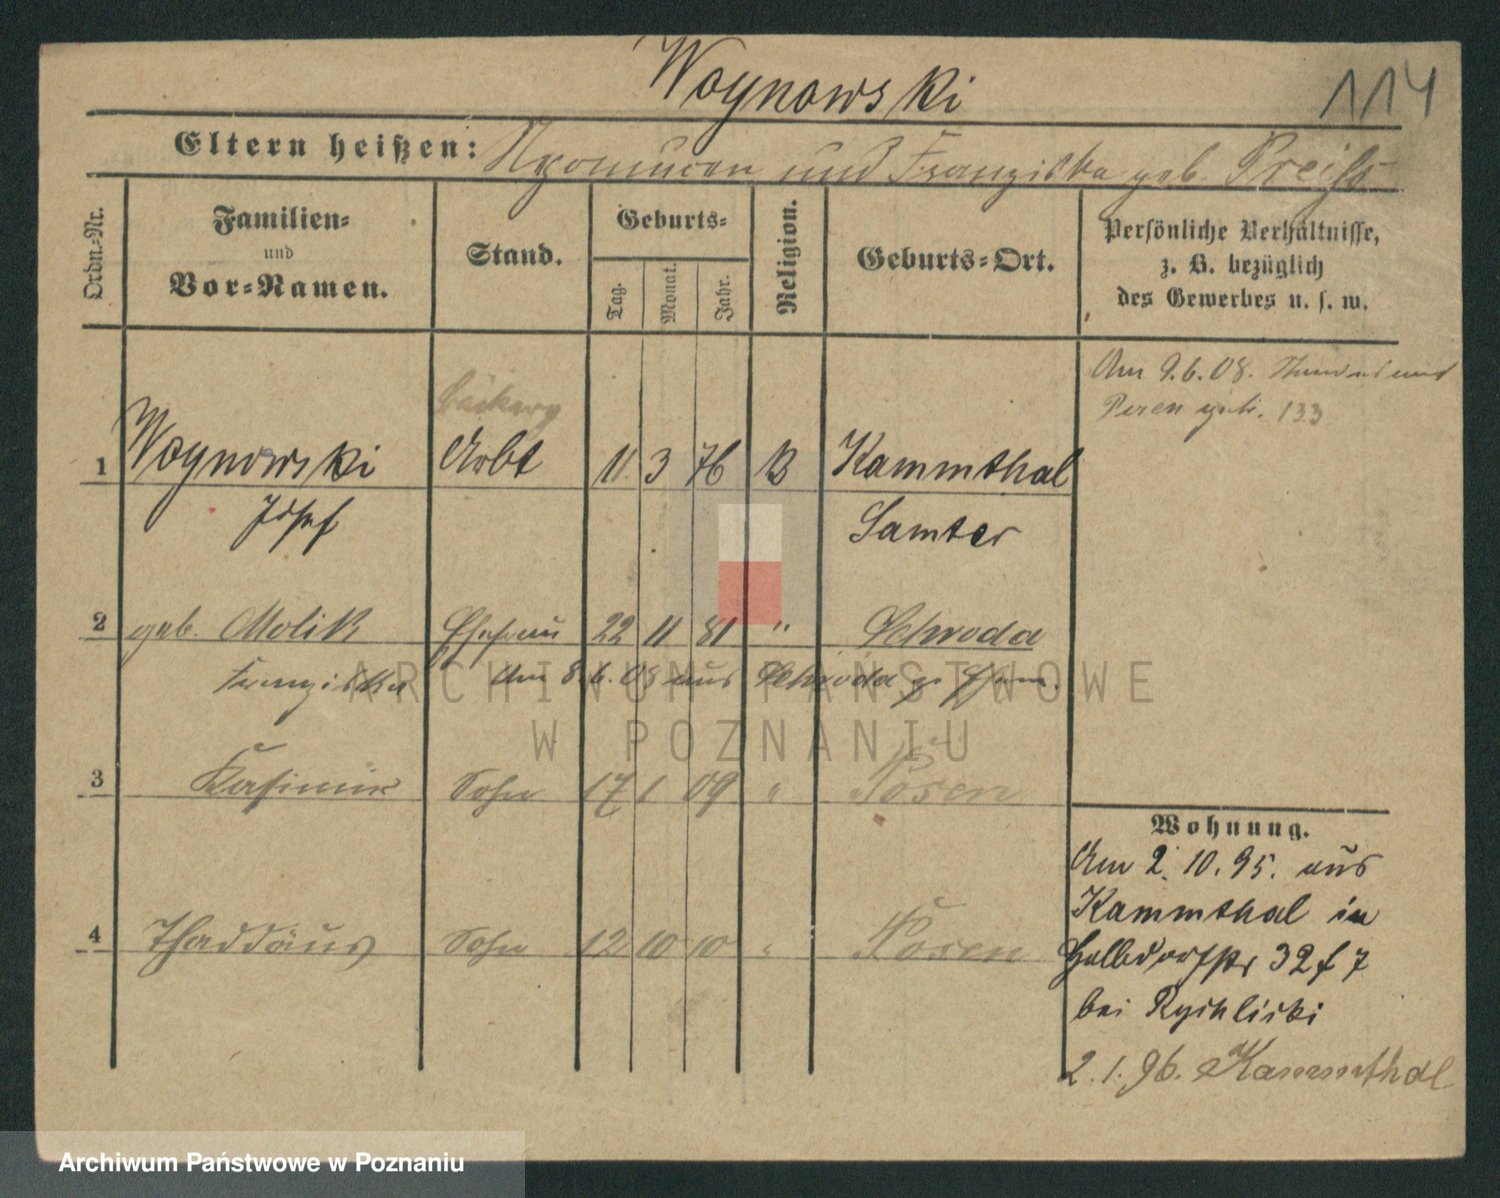 Woynowski
114
Eltern heißen: Nepomucen und Franziska geb. Preiß
Ordn.-Nr.
Familien-
und
Vor-Namen.
Stand.
Geburts-
Tag.
Monat.
Jahr.
Religion.
Geburts-Ort.
Persönliche Verhältnisse,
z. B. bezüglich
des Gewerbes u. s. w.
Am 9.6.08.
Posen geh. 133
1 Woynowski Arbt 11 3 76 K Kammthal
Josef Samter
2 geb. Molik Ehefrau 22 11 81 " Schroda
Franziska Am 8.6.08 aus Schroda
3 Kasimir Sohn 17 1 09 " Posen
4 Thaddäus Sohn 12 10 10 " Posen
Wohnung.
Am 2. 10. 95. aus
Kammthal in
Halbdorfstr 32 f 7
bei Rychlicki
2. 1. 96. Kammthal
ARCHIWUM PAŃSTWOWE
W POZNANIU
Archiwum Państwowe w Poznaniu